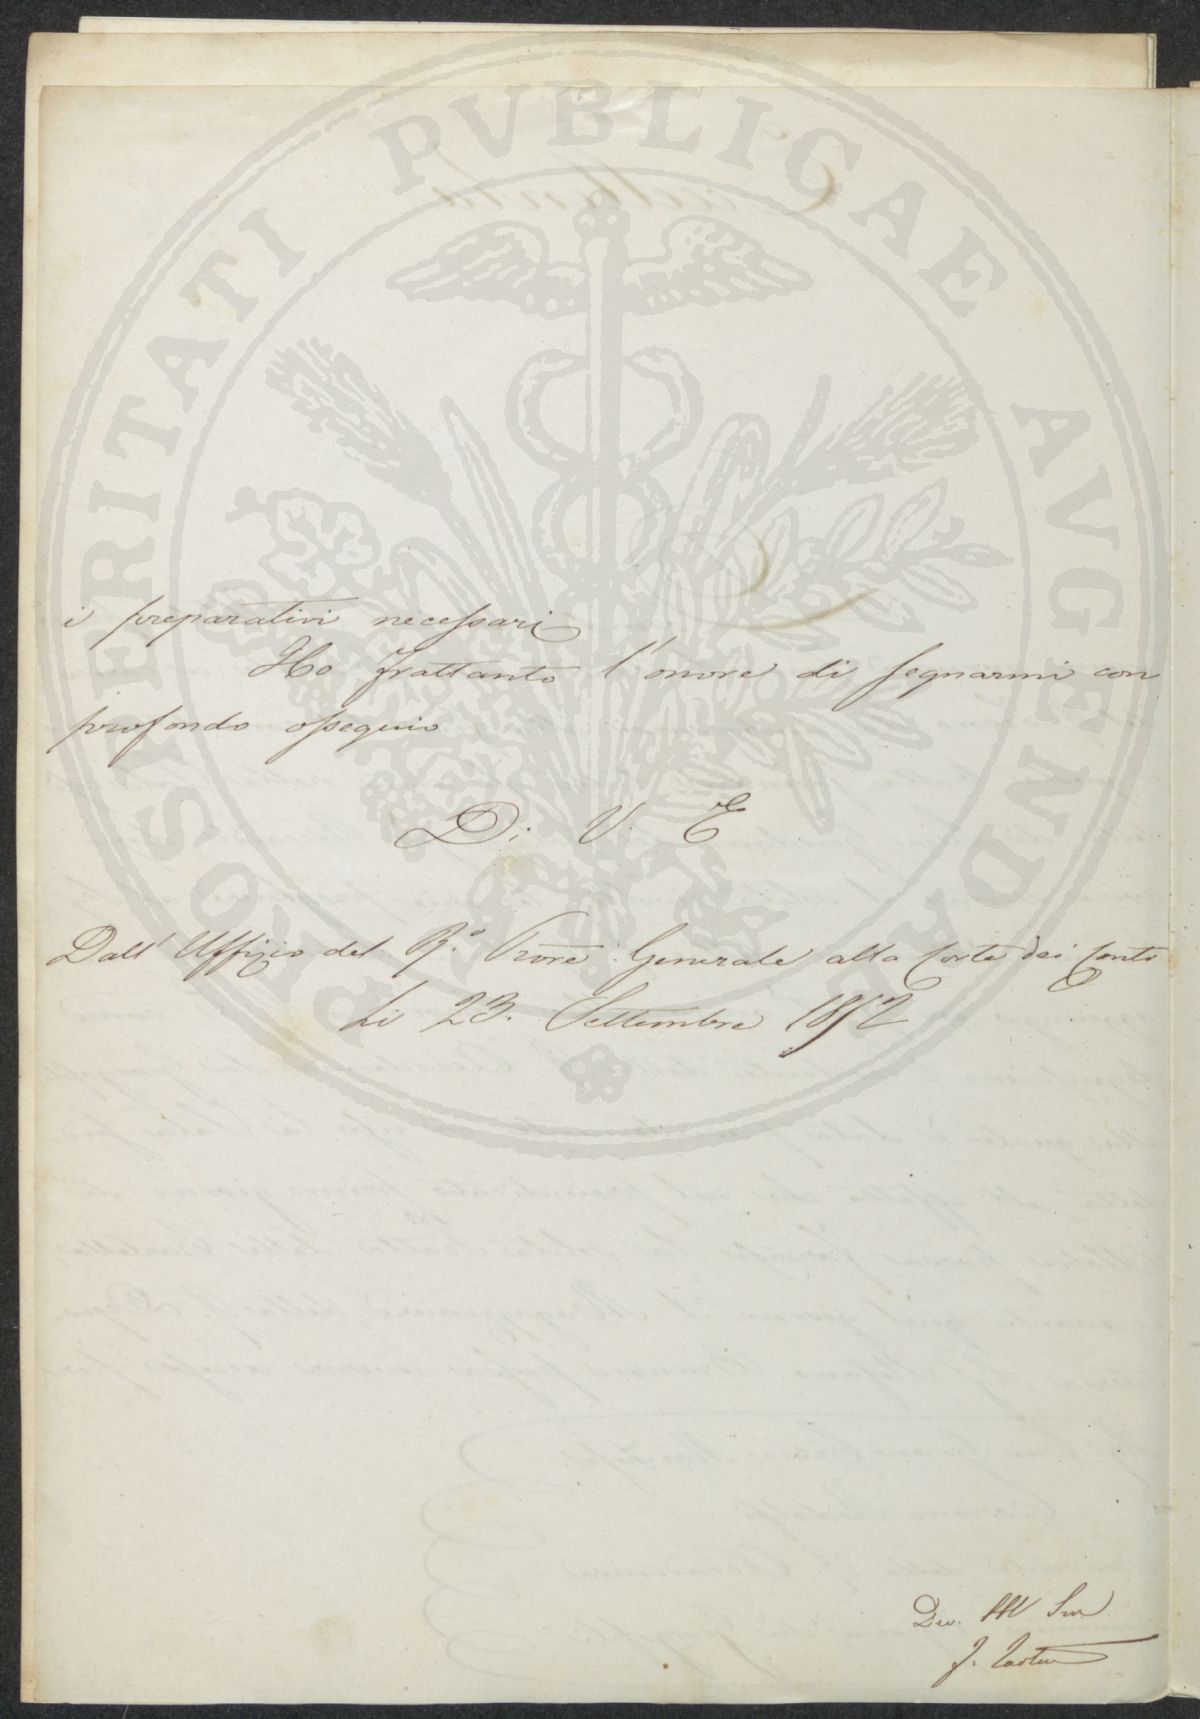 PROSPERITATI PVBLICAE AVGENDAE
i preparativi necessari
Ho frattanto l'onore di segnarmi con
profondo ossequio
Di V. E
Dall' Uffizio del R.º Prore Generale alla Corte dei Conti
Li 23. Settembre 1852
Dev.
J.